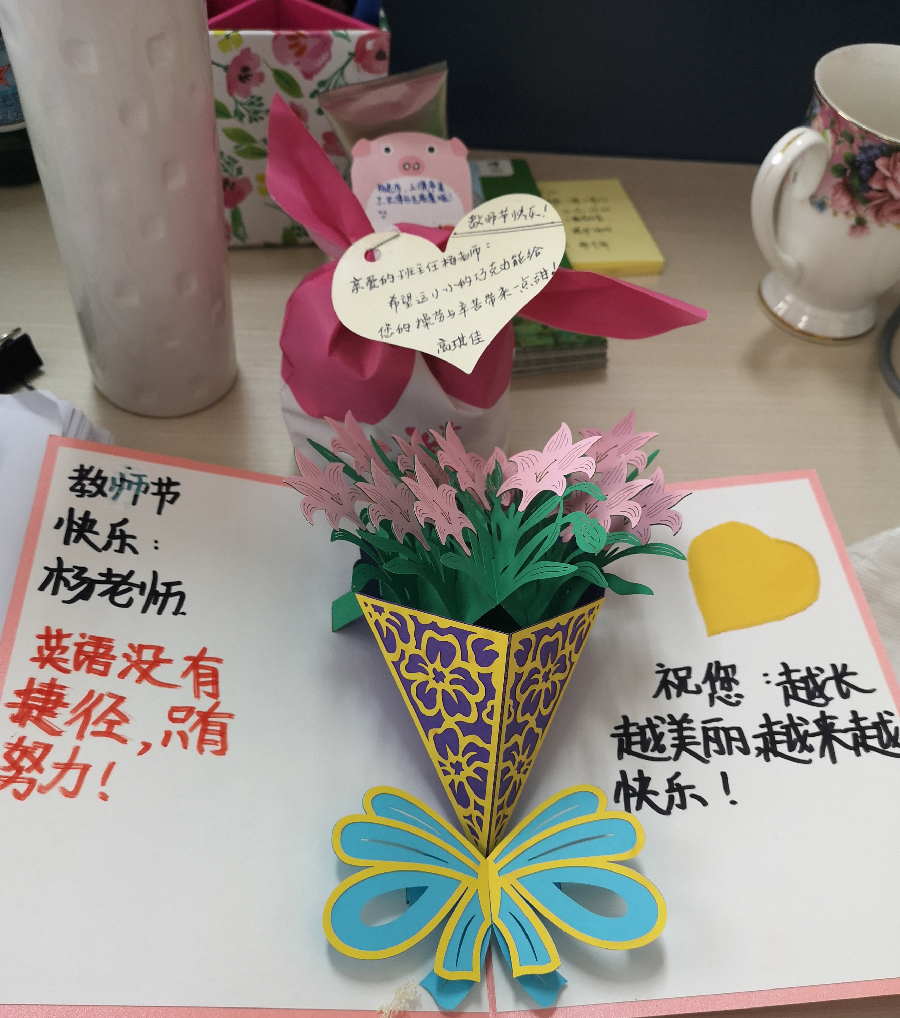 教师节快乐！
亲爱的班主任杨老师：
希望这小小的巧克力能给
您的操劳与辛苦带来一点甜！
高琪佳
教师节
快乐：
杨老师
英语没有
捷径，只有
努力！
祝您：越长
越美丽，越来越
快乐！